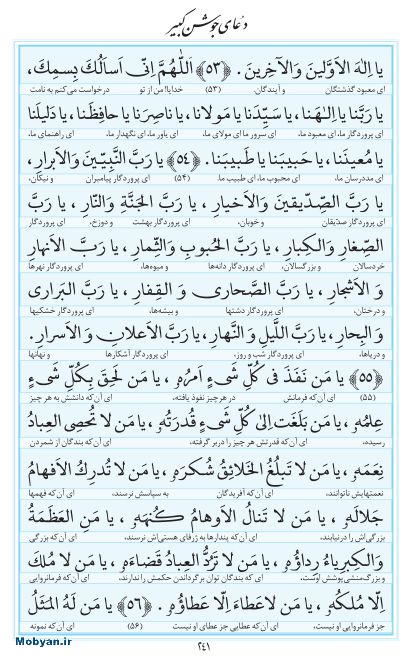 دعای جوشن کبیر
یا اِلٰهَ الاَوَّلینَ وَالآخِرینَ. ﴿۵۳﴾ اَللّٰهُمَّ اِنّی اَسأَلُكَ بِسمِكَ،
ای معبود گذشتگان و آیندگان. (۵۳) خدایا! من از تو درخواست می‌کنم به نامت
یا رَبَّنا یا اِلٰهَنا، یا سَیِّدَنا یا مَولانا، یا ناصِرَنا یا حافِظَنا، یا دَلیلَنا
ای پروردگار ما، ای معبود ما، ای سرور ما ای مولای ما، ای یاور ما، ای نگهدار ما، ای راهنمای ما،
یا مُعینَنا، یا حَبیبَنا یا طَبیبَنا. ﴿۵۴﴾ یا رَبَّ النَّبِیّینَ وَالاَبرارِ،
ای مددرسان ما، ای محبوب ما، ای طبیب ما. (۵۴) ای پروردگار پیامبران و نیکان،
یا رَبَّ الصِّدّیقینَ وَالاَخیارِ، یا رَبَّ الجَنَّةِ وَالنّارِ، یا رَبَّ
ای پروردگار صدّیقان و خوبان، ای پروردگار بهشت و دوزخ، ای پروردگار
الصِّغارِ وَالكِبارِ، یا رَبَّ الحُبوبِ وَالثِّمارِ، یا رَبَّ الاَنهارِ
خردسالان و بزرگسالان، ای پروردگار دانه‌ها و میوه‌ها، ای پروردگار نهرها
وَ الاَشجارِ، یا رَبَّ الصَّحاری وَ القِفارِ، یا رَبَّ البَراری
و درختان، ای پروردگار دشتها و بیشه‌ها، ای پروردگار خشکیها
وَالبِحارِ، یا رَبَّ اللَّیلِ وَالنَّهارِ، یا رَبَّ الاَعلانِ وَالاَسرارِ.
و دریاها، ای پروردگار شب و روز، ای پروردگار آشکارها و نهانها
﴿۵۵﴾ یا مَن نَفَذَ فی کُلِّ شَیءٍ اَمرُهُ، یا مَن لَحِقَ بِکُلِّ شَیءٍ
(۵۵) ای آن‌که فرمانش در هرچیز نفوذ یافته، ای آن‌که دانشش به هر چیز
عِلمُهُ، یا مَن بَلَغَت اِلیٰ کُلِّ شَیءٍ قُدرَتُهُ، یا مَن لا تُحصِی العِبادُ
رسیده، ای آن‌که قدرتش هر چیز را دربر گرفته، ای آن‌که بندگان از شمردن
نِعَمَهُ، یا مَن لا تَبلُغُ الخَلائِقُ شُکرَهُ، یا مَن لا تُدرِكُ الاَفهامُ
نعمتهایش ناتوانند، ای آن‌که آفریدگان به سپاسش نرسند، ای آن‌که فهمها
جَلالَهُ، یا مَن لا تَنالُ الاَوهامُ کُنهَهُ، یا مَنِ العَظَمَةُ
بزرگی‌اش را درنیابند، ای آن‌که پندارها به ژرفای هستی‌اش نرسند، ای آن‌که بزرگی
وَالکِبرِیاءُ رِداؤُهُ، یا مَن لا تَرُدُّ العِبادُ قَضاءَهُ، یا مَن لا مُلكَ
و بزرگ‌منشی پوشش اوست، ای که بندگان توان برگرداندن حکمش را ندارند، ای آن‌که فرمانروایی
اِلّا مُلکُهُ، یا مَن لاعَطاءَ اِلّا عَطاؤُهُ. ﴿۵۶﴾ یا مَن لَهُ المَثَلُ
جز فرمانروایی او نیست، ای آن‌که عطایی جز عطای او نیست (۵۶) ای آن‌که نمونه
Mobyan.ir
۲۴۱